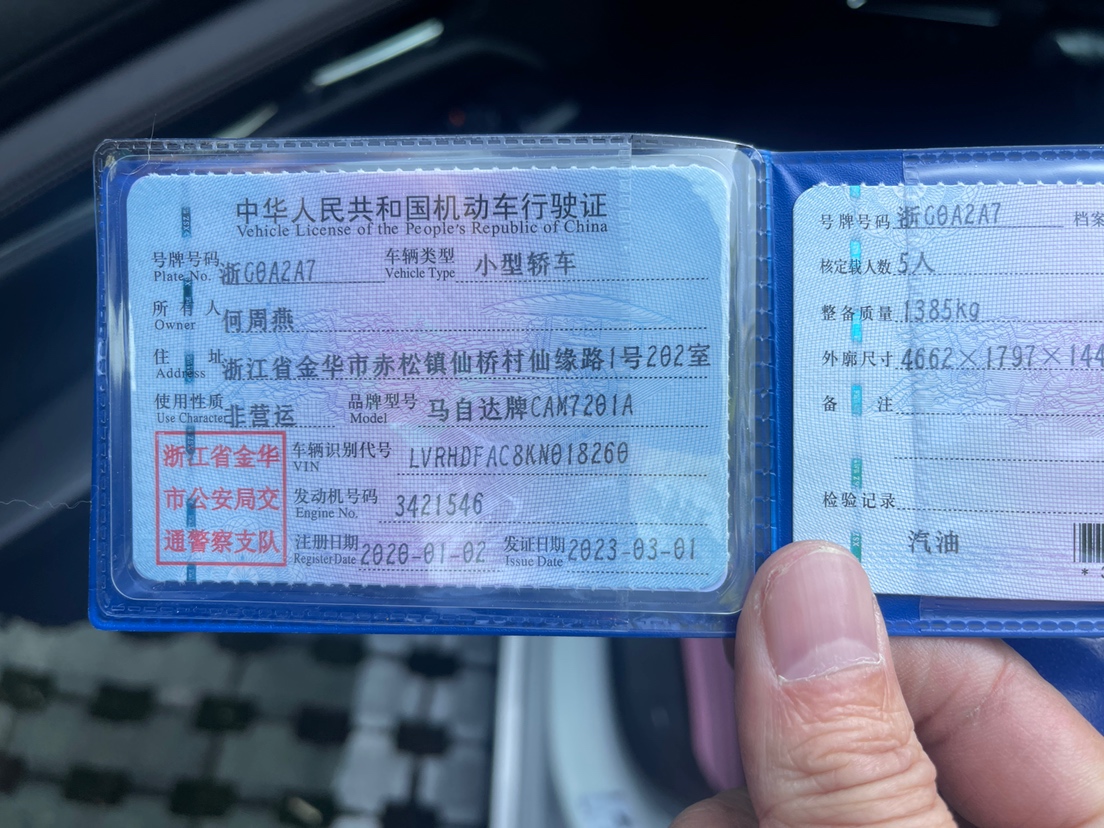 中华人民共和国机动车行驶证
Vehicle License of the People's Republic of China
号牌号码 浙G0A2A7 车辆类型 小型轿车
Plate No. Vehicle Type
所有人 何周燕
Owner
住址 浙江省金华市赤松镇仙桥村仙缘路1号202室
Address
使用性质 非营运 品牌型号 马自达牌CAM7201A
Use Character Model
浙江省金华
市公安局交
通警察支队
车辆识别代号 LVRHDFAC8KN018260
VIN
发动机号码 3421546
Engine No.
注册日期 2020-01-02 发证日期 2023-03-01
Register Date Issue Date
号牌号码 浙G0A2A7 档案
核定载人数 5人
整备质量 1385kg
外廓尺寸 4662×1797×144
备注
检验记录
汽油